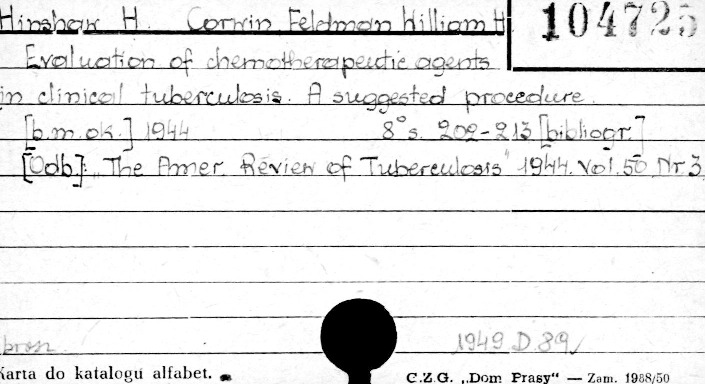 Hinshaw H. Corwin Feldman William H
104725
Evaluation of chemotherapeutic agents
in clinical tuberculosis. A suggested procedure.
[b.m.ok.] 1944 8° s. 202-213 [bibliogr.]
[Odb]: „The Amer. Review of Tuberculosis" 1944. vol. 50 Nr 3
brosz.
1949 D 89/
Karta do katalogu alfabet.
C.Z.G. „Dom Prasy“ — Zam. 1988/50